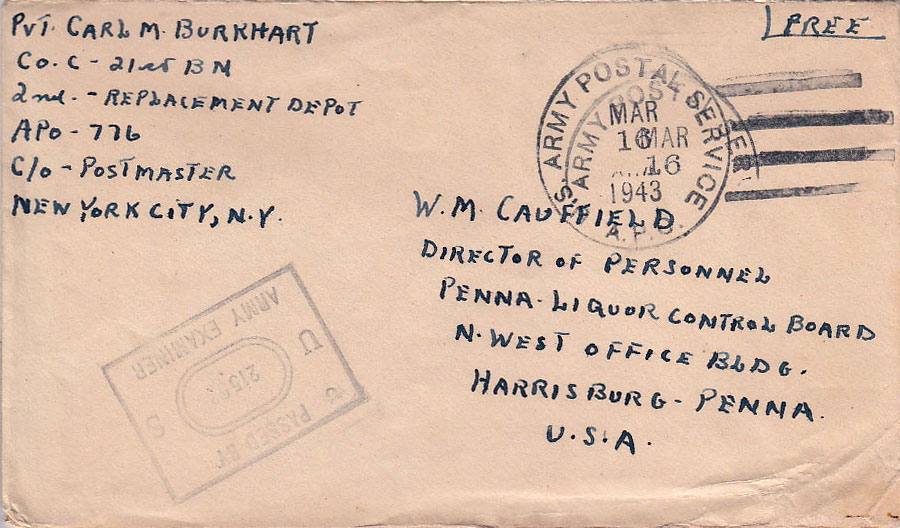 PVT. CARL M. BURKHART
CO. C - 21st BN
2nd. - REPLACEMENT DEPOT
APO - 776
C/O - POSTMASTER
NEW YORK CITY, N.Y.
FREE
U.S. ARMY POSTAL SERVICE
A.P.O.
ARMY POSTAL SER
MAR
16
1943
MAR
16
W. M. CAUFFIELD
DIRECTOR OF PERSONNEL
PENNA. LIQUOR CONTROL BOARD
N. WEST OFFICE BLDG.
HARRISBURG - PENNA.
U.S.A.
PASSED BY
U S
ARMY EXAMINER